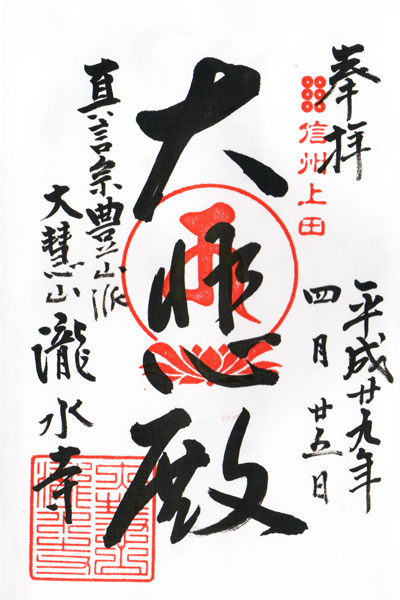 奉拝
信州上田
平成廿九年
四月廿五日
大悲殿
真言宗豊山派
大慧山 瀧水寺